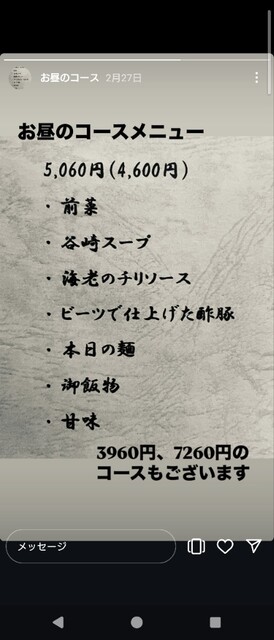 お昼のコース 2月27日
お昼のコースメニュー
5,060円(4,600円)
・前菜
・谷崎スープ
・海老のチリソース
・ビーツで仕上げた酢豚
・本日の麺
・御飯物
・甘味
3960円、7260円の
コースもございます
メッセージ